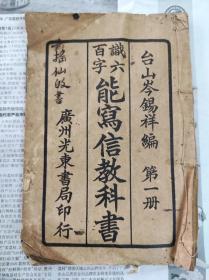 台山岑錫祥編　第一册
識六百字能寫信教科書
廣州光東書局印行